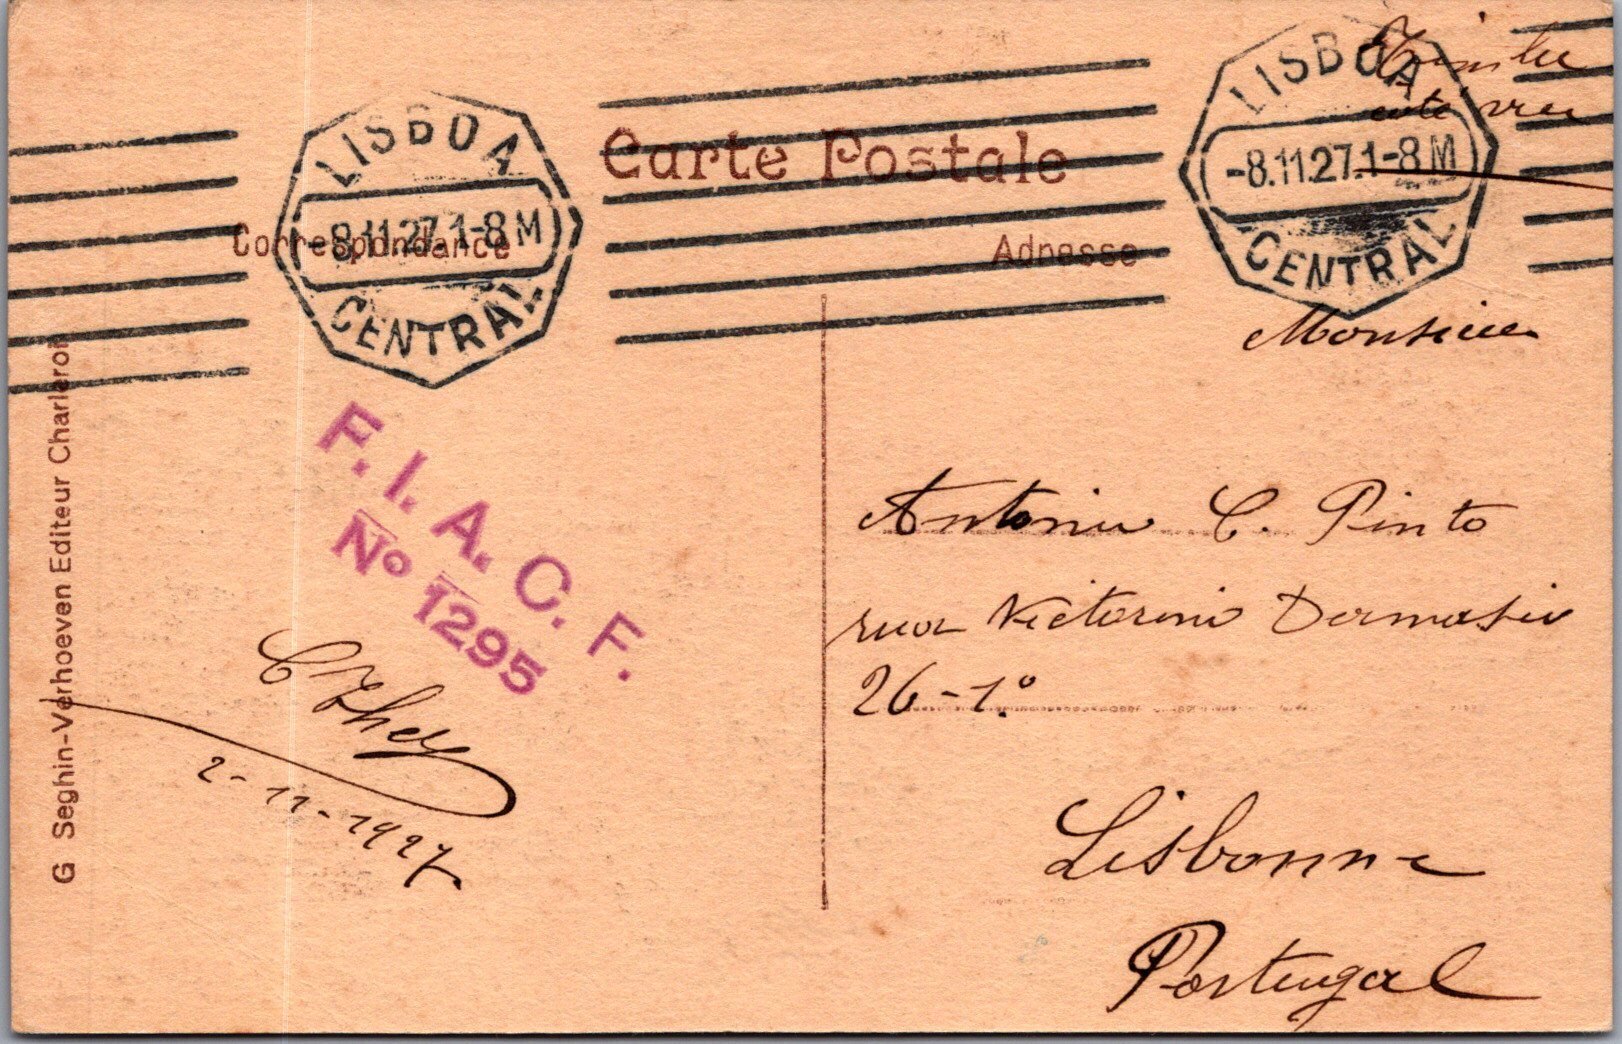 Timbre
côté vue
LISBOA
-8.11.27.1-8M
CENTRAL
LISBOA
-8.11.27.1-8M
CENTRAL
Carte Postale
Correspondance
Adresse
Monsieur
Antonio C. Pinto
rua Victorino Damasio
26-1.º
Lisbonne
Portugal
F. I. A. C. F.
No 1295
2-11-1927.
G Seghin-Verhoeven Editeur Charleroi